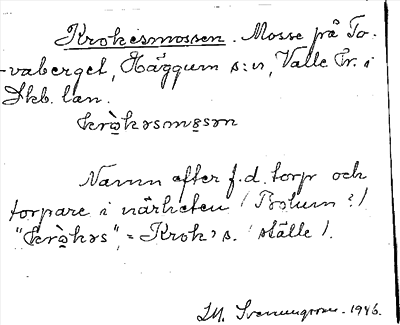 Krokesmossen. Mosse på To-
vaberget, Häggum s:n, Valle hr. i
Skb. län.
krò̠kəsmo̠sən
Namn efter f.d. torp och
torpare i närheten (Trolum?)
"krò̠kəs", = Krok's. (ställe).
1946.